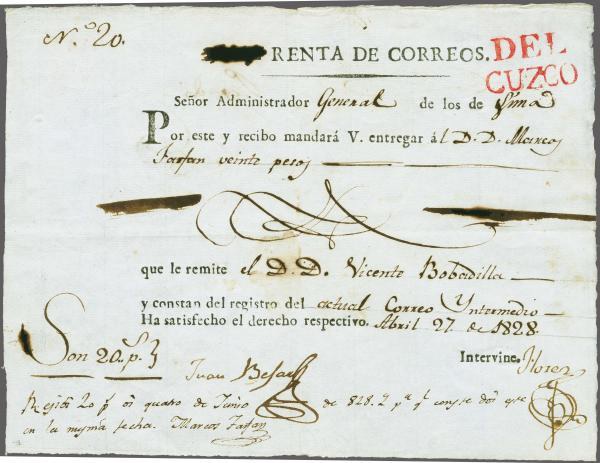 N.º 20.
RENTA DE CORREOS.
DEL
CUZCO
Señor Administrador General de los de Lima
Por este y recibo mandará V. entregar ál D. D. Marcos
Farfan veinte pesos
que le remite el D. D. Vicente Bobadilla
y constan del registro del actual Correo Yntermedio
Ha satisfecho el derecho respectivo. Abril 27. de 1828.
Son 20. p.s
Intervine.
Juan
en la misma fecha. Marcos Farfan